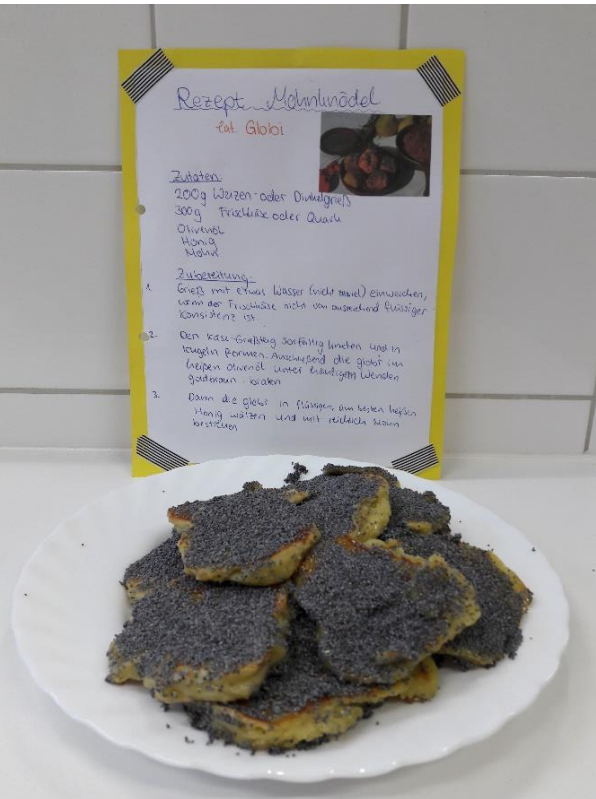 Rezept Mohnknödel
lat Globi
Zutaten:
200g Weizen- oder Dinkelgrieß
300g Frischkäse oder Quark
Olivenöl
Honig
Mohn
Zubereitung:
1. Grieß mit etwas Wasser (nicht zuviel) einweichen,
wenn der Frischkäse nicht von ausreichend flüssiger
Konsistenz ist
2. Den Käse-Grießteig sorfältig kneten und in
Kugeln formen. Anschließend die globi im
heißen Olivenöl unter häufigem Wenden
goldbraun braten
3. Dann die globi in flüssigen, am besten heißen
Honig wälzen und mit reichlich Mohn
bestreuen